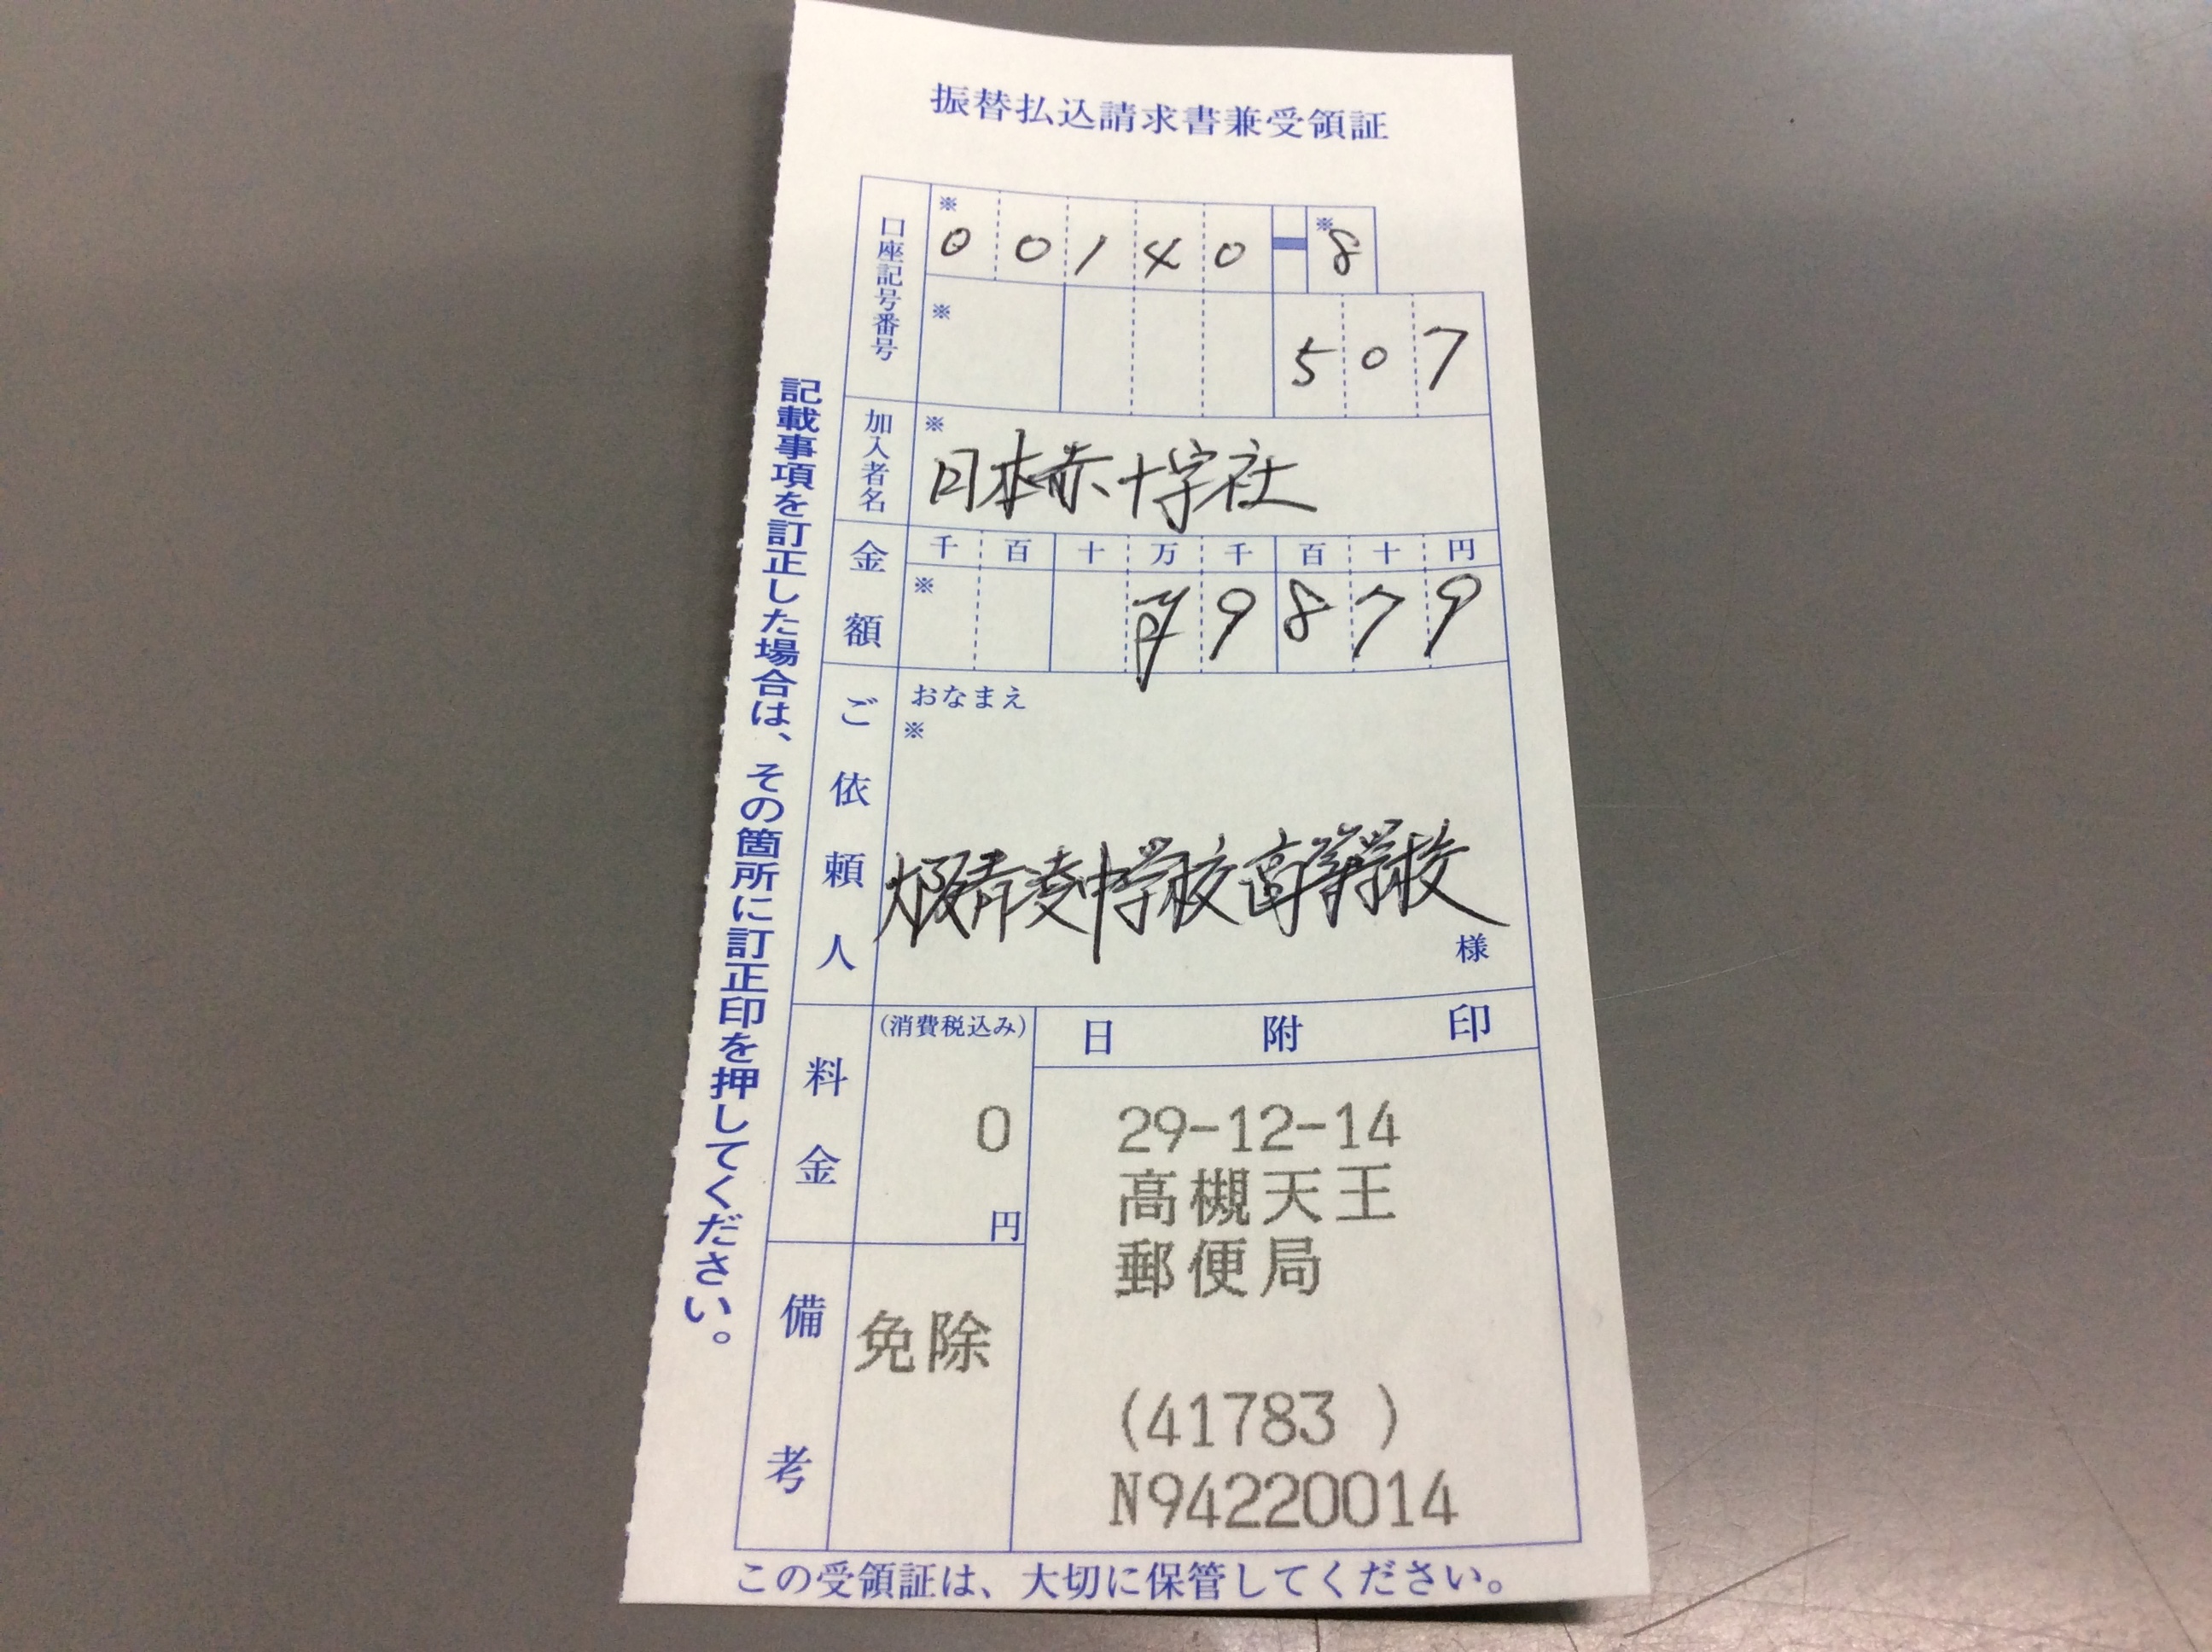 振替払込請求書兼受領証
口座記号番号
※ ※
00140-8
※
507
加入者名
※
日本赤十字社
金額
千 百 十 万 千 百 十 円
※
¥9879
ご依頼人
おなまえ
※
大阪青凌中学校高等学校
様
料金
(消費税込み)
0
円
日附印
29-12-14
高槻天王
郵便局
(41783 )
N94220014
備考
免除
記載事項を訂正した場合は、その箇所に訂正印を押してください。
この受領証は、大切に保管してください。